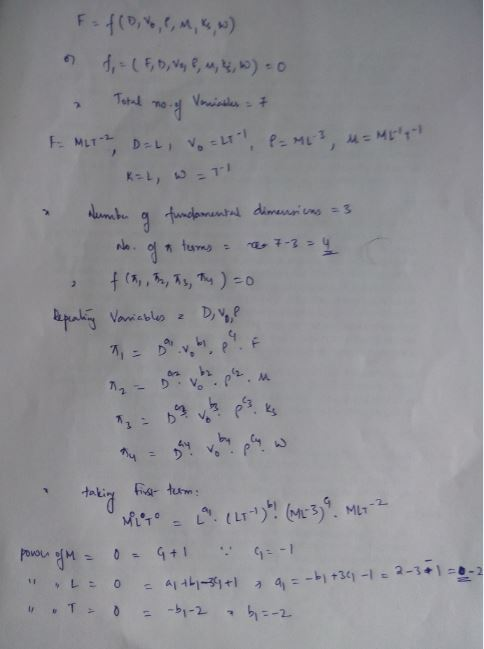 F = f(D, V₀, ρ, μ, ks, w)
or f₁ = (F, D, V₀, ρ, μ, ks, w) = 0
Total no. of Variables = 7
F = MLT⁻², D = L, V₀ = LT⁻¹, ρ = ML⁻³, μ = ML⁻¹T⁻¹
K = L, w = T⁻¹
Number of fundamental dimensions = 3
No. of π terms = 7-3 = 4
f(π₁, π₂, π₃, π₄) = 0
Repeating Variables = D, V₀, ρ
π₁ = D^a1 . V₀^b1 . ρ^c1 . F
π₂ = D^a2 . V₀^b2 . ρ^c2 . μ
π₃ = D^a3 . V₀^b3 . ρ^c3 . ks
π₄ = D^a4 . V₀^b4 . ρ^c4 . w
taking first term:
M⁰L⁰T⁰ = L^a1 . (LT⁻¹)^b1 . (ML-3)^c1 . MLT⁻²
power of M = 0 = c₁+1 ∵ c₁ = -1
" " L = 0 = a₁+b₁-3c₁+1 , a₁ = -b₁+3c₁-1 = 2-3-1 = -2
" " T = 0 = -b₁-2 , b₁ = -2